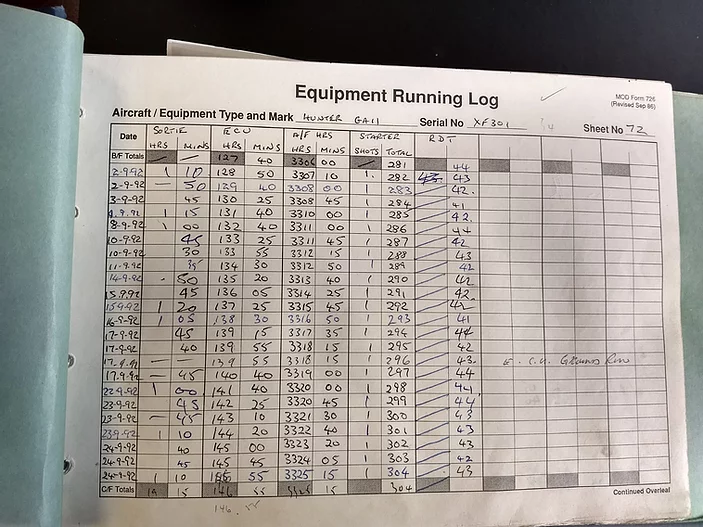 Equipment Running Log
MOD Form 726
(Revised Sep 86)
Aircraft / Equipment Type and Mark HUNTER GA11 Serial No XF301 Sheet No 72
Date SORTIE ECU A/F HRS STARTER RDT
HRS MINS HRS MINS HRS MINS SHOTS TOTAL
B/F Totals 127 40 3306 00 281 44
2-9-92 1 10 128 50 3307 10 1 282 43
2-9-92 — 50 129 40 3308 00 1 283 42
3-9-92 45 130 25 3308 45 1 284 41
4.9.92 1 15 131 40 3310 00 1 285 42
8-9-92 1 00 132 40 3311 00 1 286 44
10-9-92 45 133 25 3311 45 1 287 42
10-9-92 30 133 55 3312 15 1 288 43
11-9-92 35 134 30 3312 50 1 289 42
14-9-92 - 50 135 20 3313 40 1 290 42
15.9.92 45 136 05 3314 25 1 291 42
15-9-92 1 20 137 25 3315 45 1 292 42
16-9-92 1 05 138 30 3316 50 1 293 41
17-9-92 45 139 15 3317 35 1 294 44
17-9-92 40 139 55 3318 15 1 295 42
17-9-92 — — 139 55 3318 15 1 296 43 E.C.U. Ground Run
17.9.92 — 45 140 40 3319 00 1 297 44
22-9-92 1 00 141 40 3320 00 1 298 44
23-9-92 45 142 25 3320 45 1 299 44
23-9-92 — 45 143 10 3321 30 1 300 43
23-9-92 1 10 144 20 3322 40 1 301 43
24-9-92 40 145 00 3323 20 1 302 43
24-9-92 45 145 45 3324 05 1 303 42
24-9-92 1 10 146 55 3325 15 1 304 43
C/F Totals 19 15 146 55 3325 15 304
Continued Overleaf
146.55